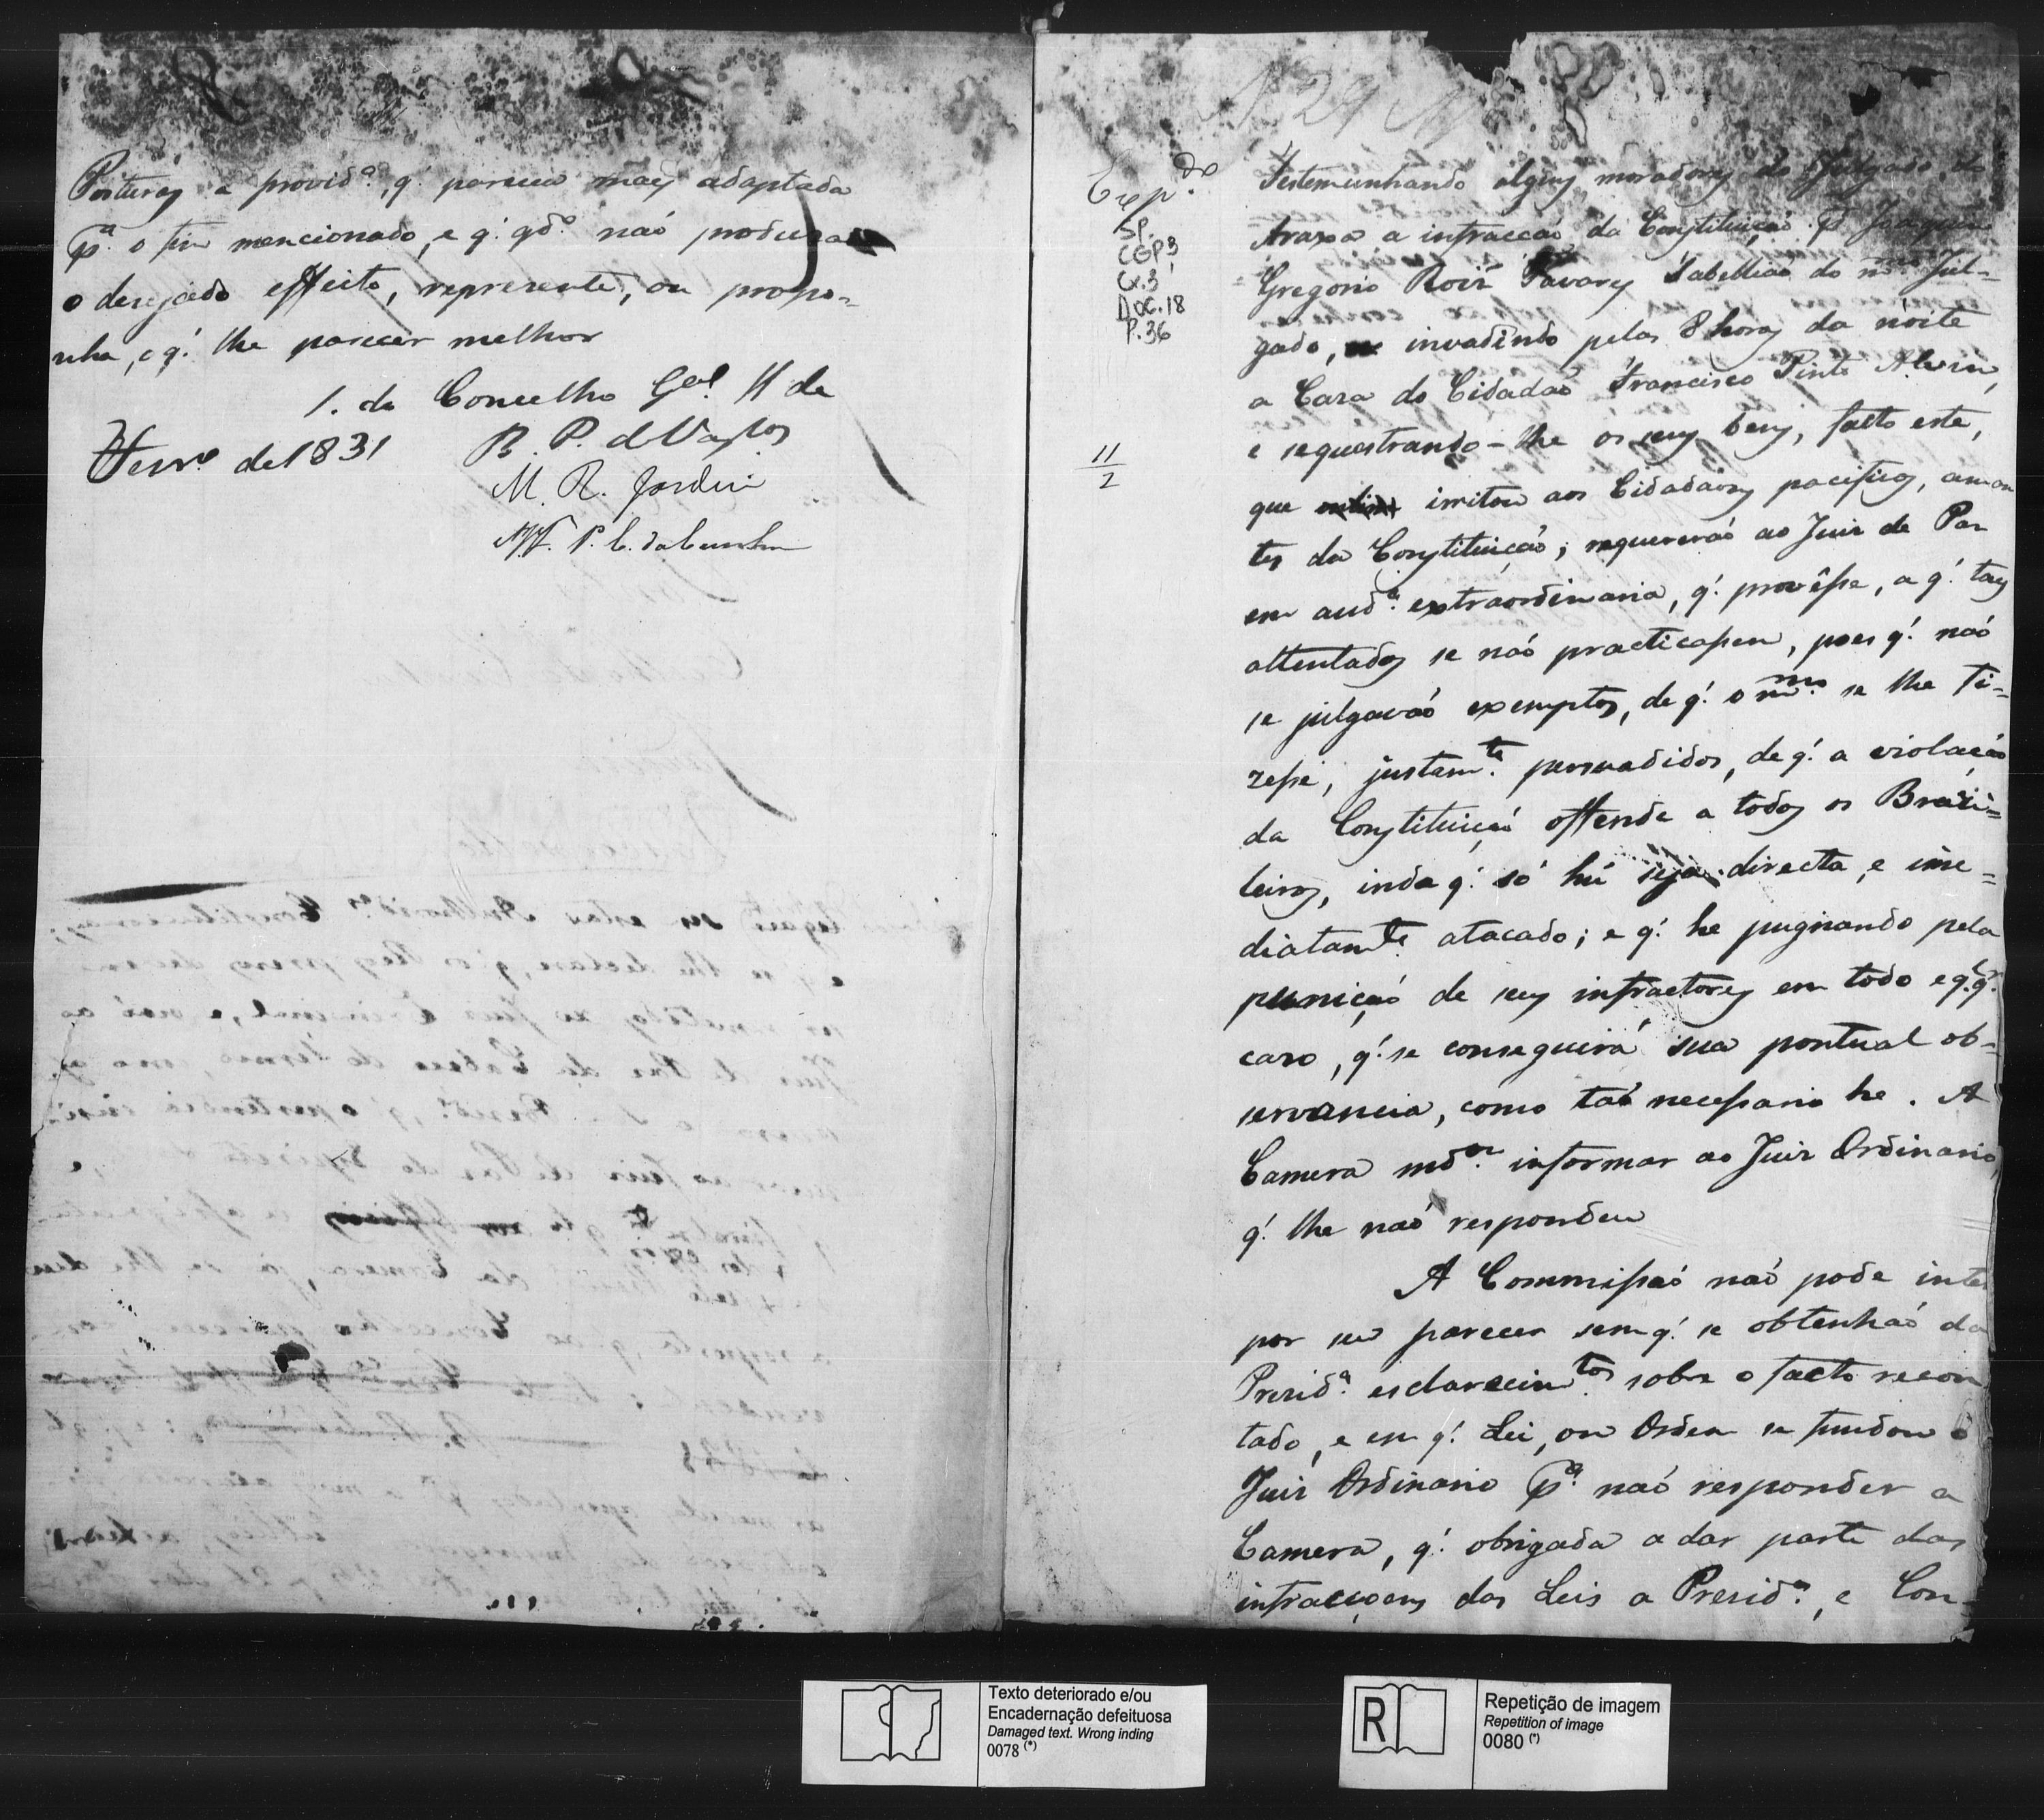 Posturas a provid.ª, q.' pareceu mais adaptada
p.ª o fim mencionado, e q.' qd.º naó produza
o desejado effeito, represente, ou propo-
nha, o q.' lhe parecer melhor
S. do Concelho G.al 11 de
Fever.º de 1831
B. P. de Vas.los
M. R. Jardim
P. C. da Cunha
N. 29
Exp.de
SP.
CGP3
Cx.3
Doc.18
P.36
11
2
Testemunhando alguns moradores do Julgado do
Araxa a infracçaó da Constituiçaó p.r Joaquim
Gregorio Roiz Tavares Tabelliaó do m.mo Jul-
gado, invadindo pelas 8 horas da noite
a Casa do Cidadaó Francisco Pinto
e sequestrando-lhe os seus bens, facto este,
que irritou aos Cidadaós pacificos, aman
tes da Constituiçaó; requereraó ao Juiz de Paz
em aud.ª extraordinaria, q.' provêsse, a q.' taes
attentados se naó practicassem, pois q.' naó
se julgavaó exemptos, de q.' o m.mo se lhe fi-
zesse, justam.te persuadidos, de q.' a violaçaó
da Constituiçaó offende a todos os Brazi-
leiros, inda q.' só hú seja directa, e ime-
diatam.te atacado; e q.' he pugnando pela
puniçaó de seus infractores em todo e q.q.r
caso, q.' se conseguirá sua pontual ob-
servancia, como taó necessario he. A
Camera md.ou informar ao Juiz Ordinario,
q.' lhe naó respondeu
A Commissaó naó pode inter
por seu parecer sem q.' se obtenhaó da
Presid.ª esclarecim.tos sobre o facto recon
tado, e em q.' Lei, ou Ordem se fundou o
Juiz Ordinario p.ª naó responder a
Camera, q.' obrigada a dar parte das
infracçoens das Leis a Presid.ª, e Con-
Texto deteriorado e/ou
Encadernação defeituosa
Damaged text. Wrong inding
0078 (*)
R
Repetição de imagem
Repetition of image
0080 (*)